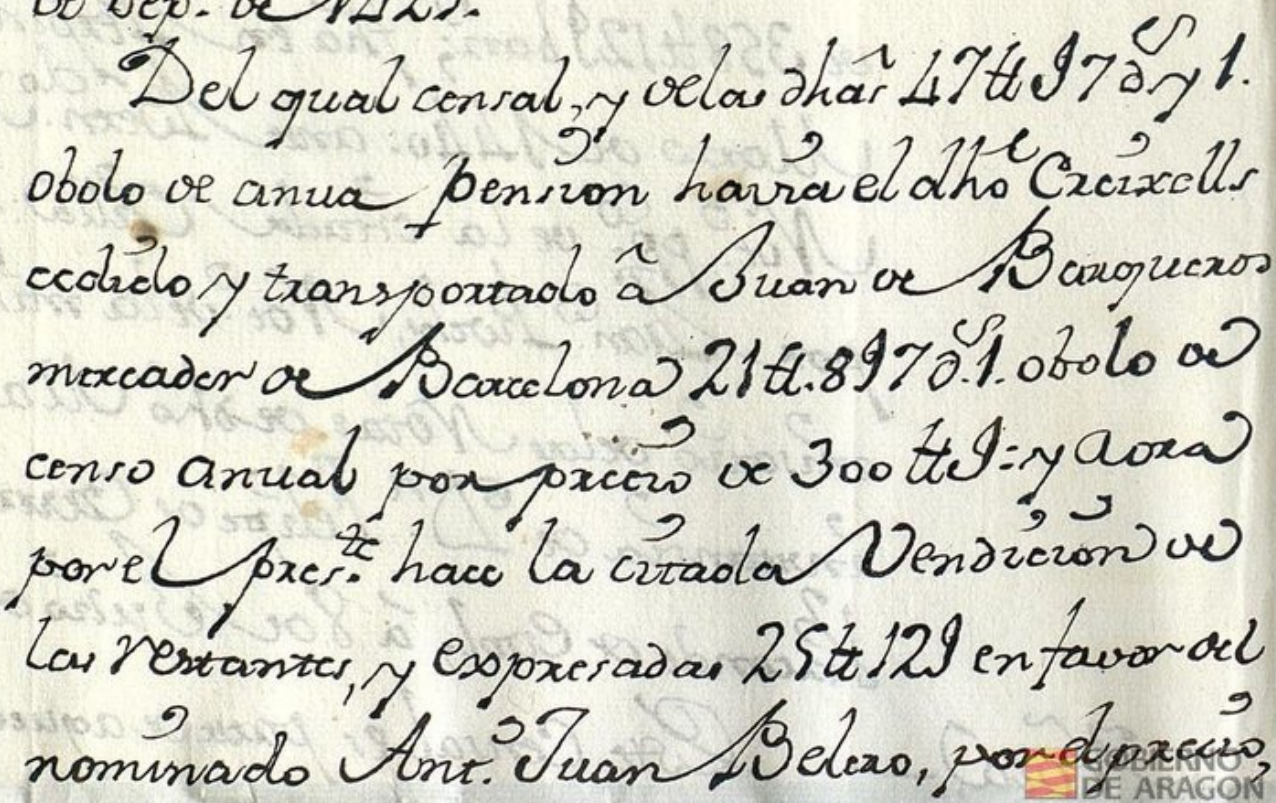 de Sep.e de 1427.
Del qual censal, y de las dhãs 47 tt I 7 ds y 1.
obolo de anua pension havra el dho Creixells
cedido y transportado â Juan de Barqueros
mercader de Barcelona 21 tt. 8 I 7 ds. 1. obolo de
censo anual por precio de 300 tt I: y aora
por el pres.te hace la citada Vendicion de
las restantes, y expresadas 25 tt 12 I en favor del
nominado Ant.º Juan Belero, por el precio,
GOBIERNO
DE ARAGON